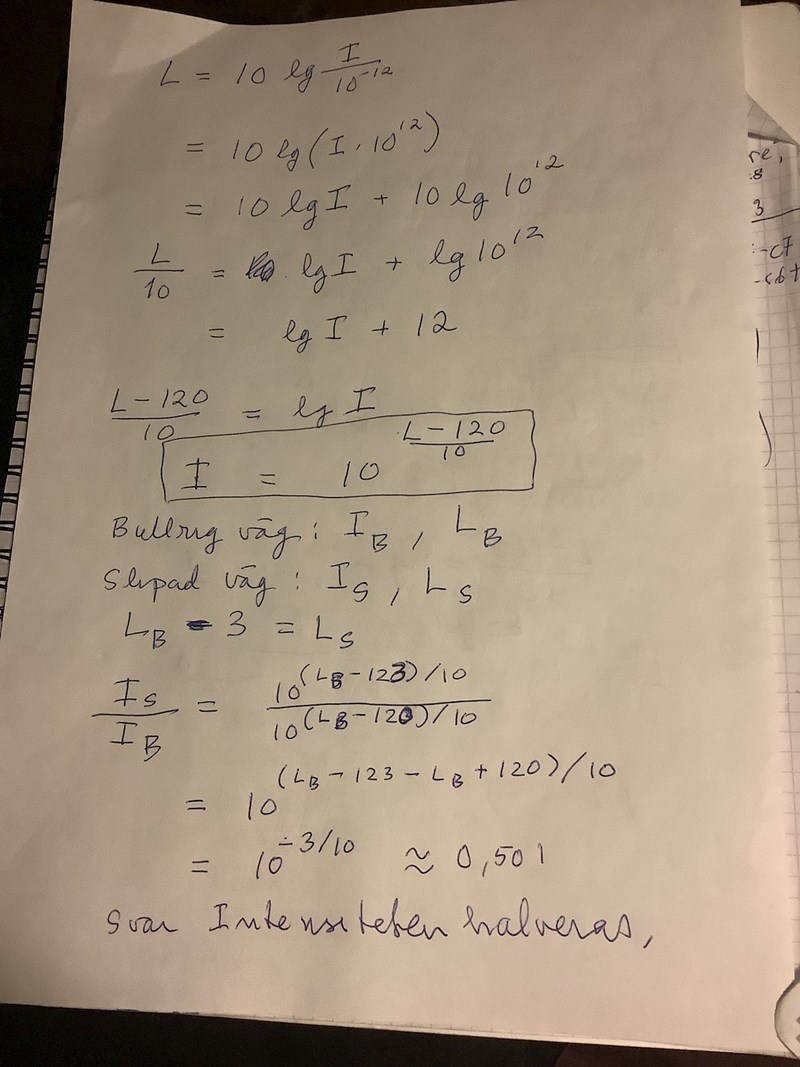 L = 10 lg I/10^-12
= 10 lg(I · 10^12)
= 10 lg I + 10 lg 10^12
L/10 = lg I + lg 10^12
= lg I + 12
(L - 120)/10 = lg I
I = 10^((L - 120)/10)
Bullrig väg: I_B, L_B
Slipad väg: I_S, L_S
L_B - 3 = L_S
I_S/I_B = 10^((L_B - 123)/10) / 10^((L_B - 120)/10)
= 10^((L_B - 123 - L_B + 120)/10)
= 10^(-3/10) ≈ 0,501
Svar Intensiteten halveras,
re,
.8
3
-c7
-c6+